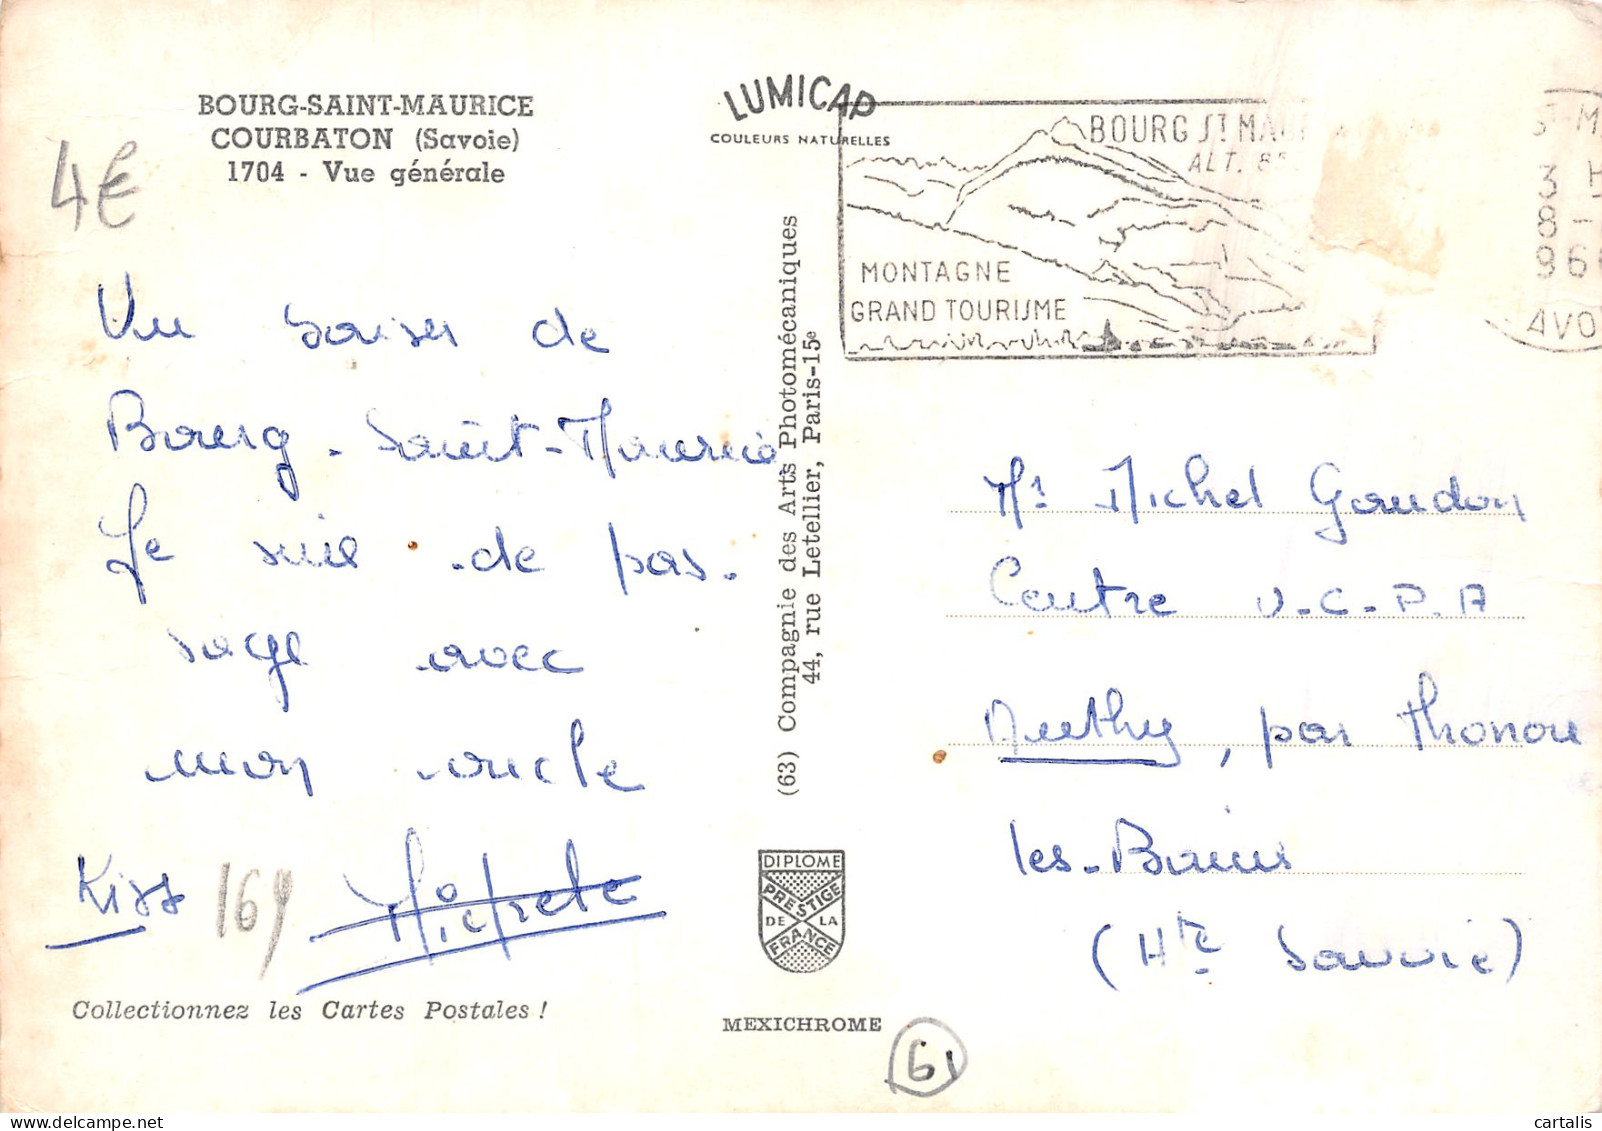 BOURG-SAINT-MAURICE
COURBATON (Savoie)
1704 - Vue générale
4€
Un baiser de
Bourg-Saint-Maurice
Je suis de pas-
sage avec
mon oncle
Kiss
169
Collectionnez les Cartes Postales !
LUMICAP
COULEURS NATURELLES
(63) Compagnie des Arts Photomécaniques
44, rue Letellier, Paris-15e
DIPLOME
PRESTIGE
DE LA
FRANCE
MEXICHROME
61
BOURG ST MAU
ALT. 8
MONTAGNE
GRAND TOURISME
ST-M
3 H
8 -
196
AVO
Mr Michel Gaudon
Centre U.C.P.A
Anthy, par Thonon
les-Bains
(Hte Savoie)
cartalis - delcampe.net